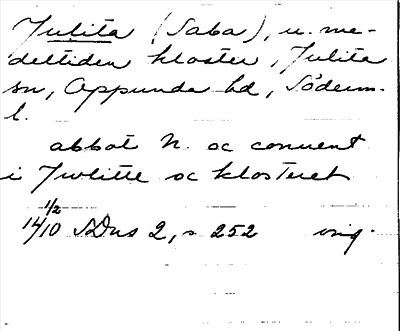 Julita (Saba), u. me-
deltiden kloster, Julita
sn, Oppunda hd, Söderm-
l.
abbot N. oc conuent
i Jwlitte oc klosteret
1/2
14/10 SDns 2, s 252 orig.